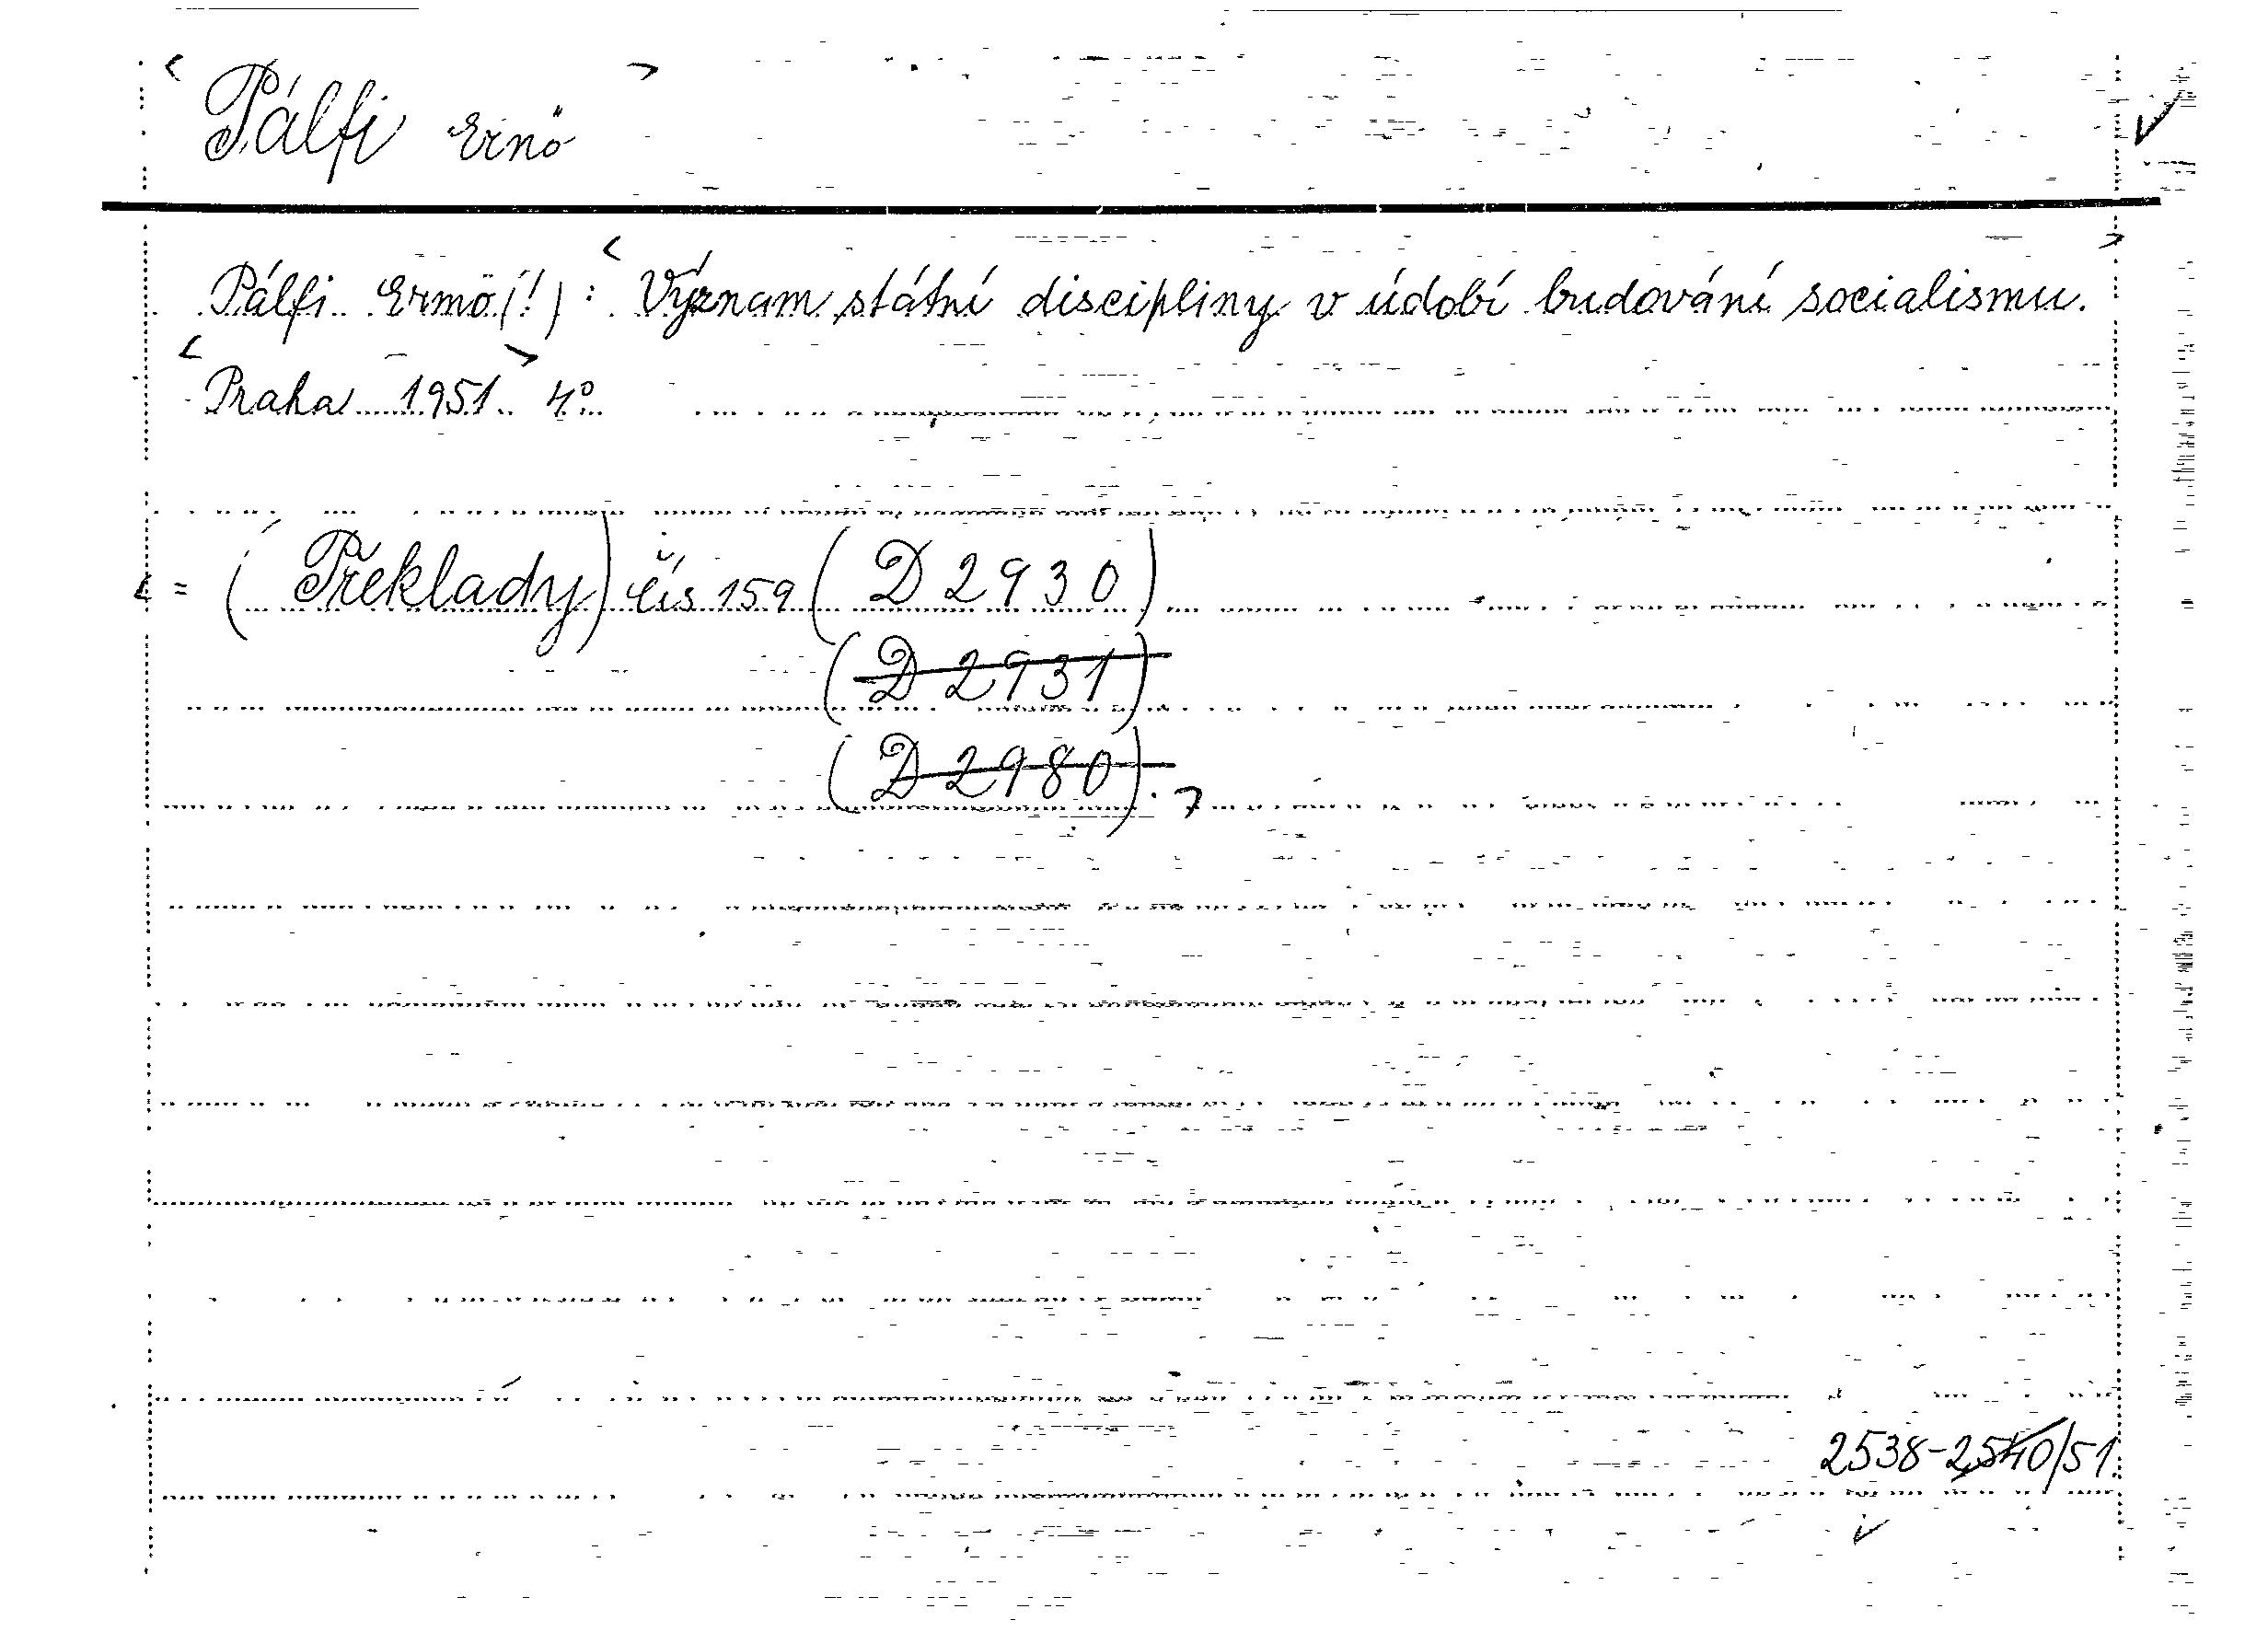 Pálfi Ernő
Pálfi Ermö (!) : Význam státní discipliny v údobí budování socialismu.
Praha 1951 4°
= (Překlady) čís 159 (D 2930)
(D 2931)
(D 2980).
2538-2540/51.